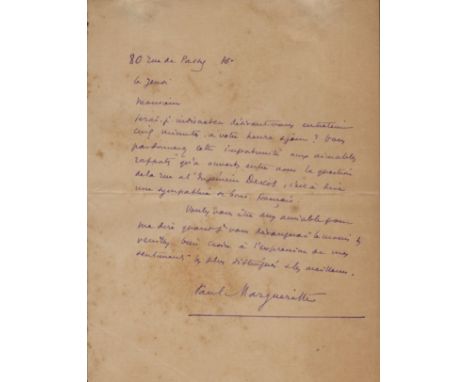 80 rue de Passy 16e
le Jeudi
Monsieur
serai-je indiscret en désirant vous entretenir
cinq minutes, à votre heure ? Vous
pardonnerez cette importunité aux aimables
rapports qu'a ouverts entre nous la question
de la rue de l'Ingénieur , c'est à dire
une sympathie de bons Français
Voulez vous être assez aimable pour
me dire quand je vous dérangerai le moins &
veuillez bien croire à l'expression de mes
sentiments les plus distingués & les meilleurs.
Paul Margueritte